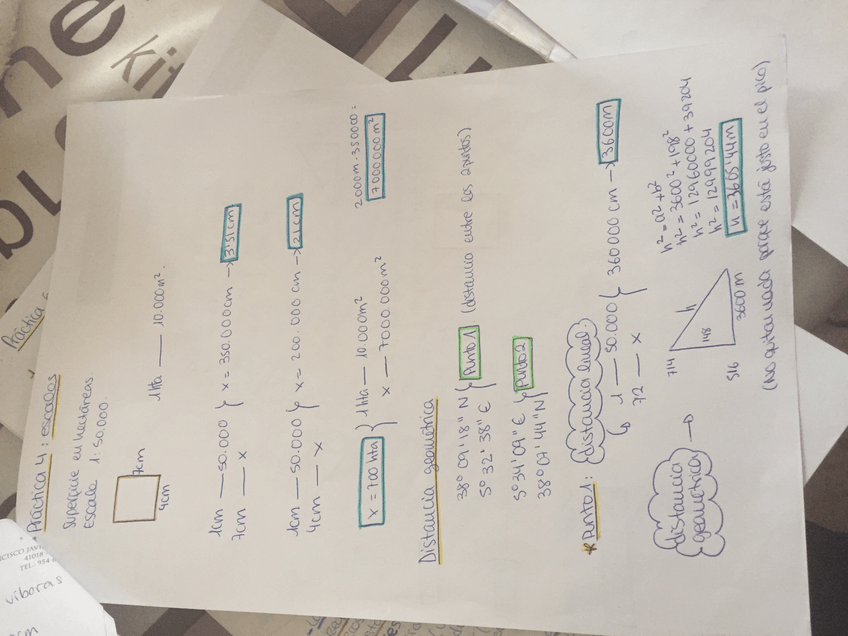 Práctica 4 : escalas
Superficie en hectáreas.
Escala 1:50.000.
7cm
4cm
1Ha — 10.000m².
1cm — 50.000 } x = 350.000cm → 3'5cm
7cm — x
1cm — 50.000 } x = 200.000 cm → 2cm
4cm — x
2000m · 350000 =
7000000m²
x = 700 hta } 1 Hta — 10.000m²
x — 7000.000m²
Distancia geométrica
38° 09' 18" N } Punto 1 (distancia entre los 2 puntos)
5° 32' 38" E
5° 34' 09" E } Punto 2
38° 07' 44" N
* Punto 1: distancia lineal.
1 — 50.000 } 360000 cm → 3600m
72 — x
distancia geométrica →
714
h
198
516
3600 m
h² = a² + b²
h² = 3600² + 198²
h² = 12960000 + 39204
h² = 12999204
h = 3605'44m
(No quitar nada porque está justo en el pico)
Práctica
kit
CISCO JAV
41018
TEL. 954
víboras
cm